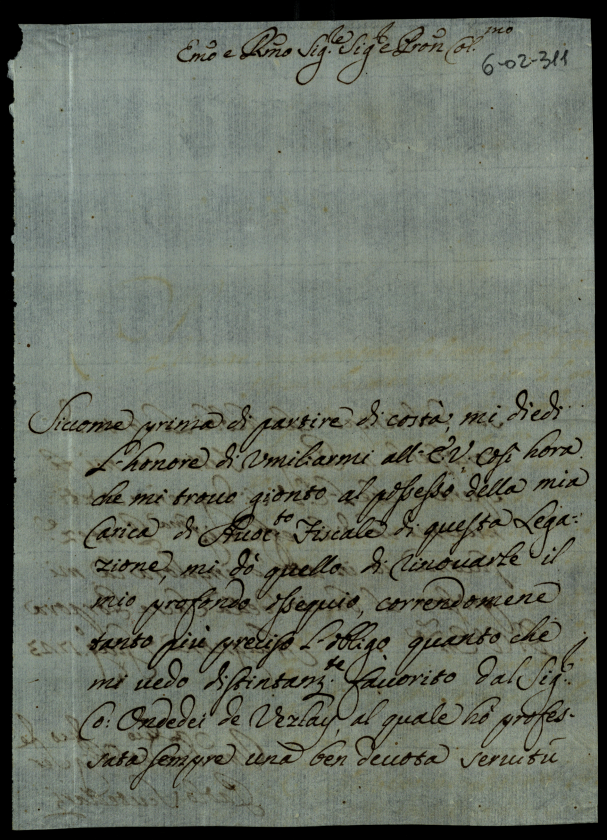 Emõ e Rmõ Sig.re Sig.r e Pron Col.mo
6-02-311
Siccome prima di partire di costà, mi diedi
L'honore di Umiliarmi all' E.V. così hora
che mi trovo gionto al possesso della mia
Carica di Avoc.to Fiscale di questa Lega:
zione, mi dò quello di rinovarle il
mio profondo ossequio, correndomene
tanto più preciso L'obligo quanto chè
mi vedo distintam.te favorito dal Sig.r
Co: Ondedei de Vezlay, al quale hò profes-
sata sempre una ben devota servitù